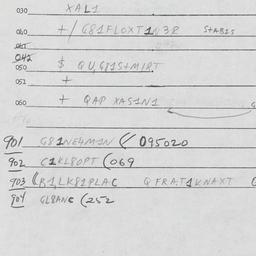 030 XAL1
040 +/G81FLOXT1N3R STABIS
041
042
050 $ QU,G81S+MIRT
051 +
060 + QAP XAS1N1
901 G81NE4M1N (( 095020
902 C1KL8OPT (069
903 (R1LK81PLAC QFRAT1KNAXT
904 GL8ANC (252